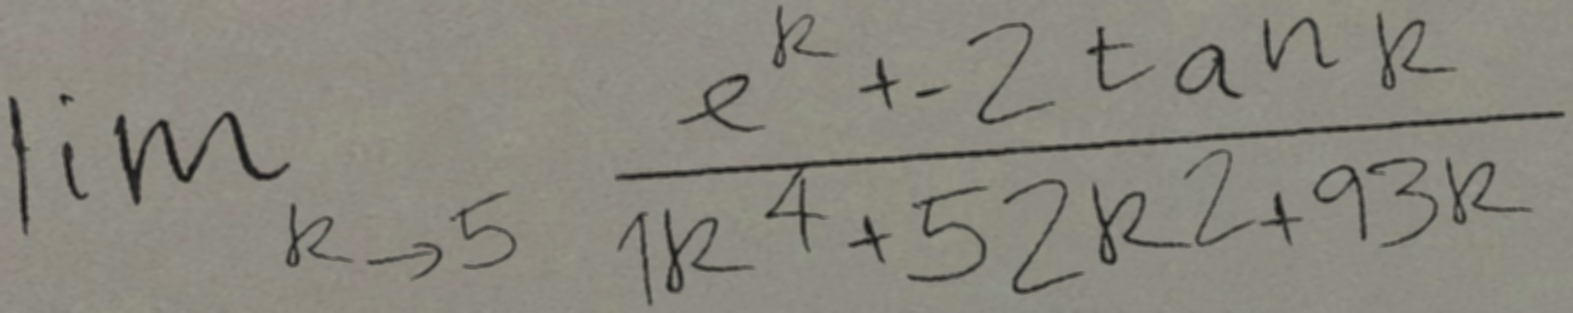 \lim_{k \to 5} \frac{e^k + -2 \tan k}{1k^4 + 52k^2 + 93k}